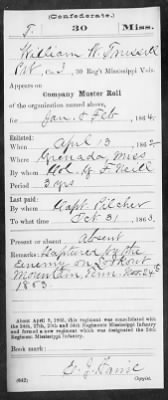 (Confederate.)
T. 30 Miss.
William W. Trussell
Pvt, Co. I, 30 Reg't Mississippi Vols.
Appears on
Company Muster Roll
of the organization named above,
for Jan & Feb, 1864.
Enlisted:
When April 13, 1862
Where Grenada, Miss
By whom Col. G. F. Neill
Period 3 yrs
Last paid:
By whom Capt. Pilcher
To what time Oct 31, 1863.
Present or absent Absent
Remarks: Captured by the
Enemy on Lookout
Mountain, Tenn. Nov. 24th
1863.
About April 9, 1865, this regiment was consolidated with
the 24th, 27th, 29th and 34th Regiments Mississippi Infantry
and formed a new regiment which was designated the 24th
Regiment Mississippi Infantry.
Book mark:
(642) Copyist.